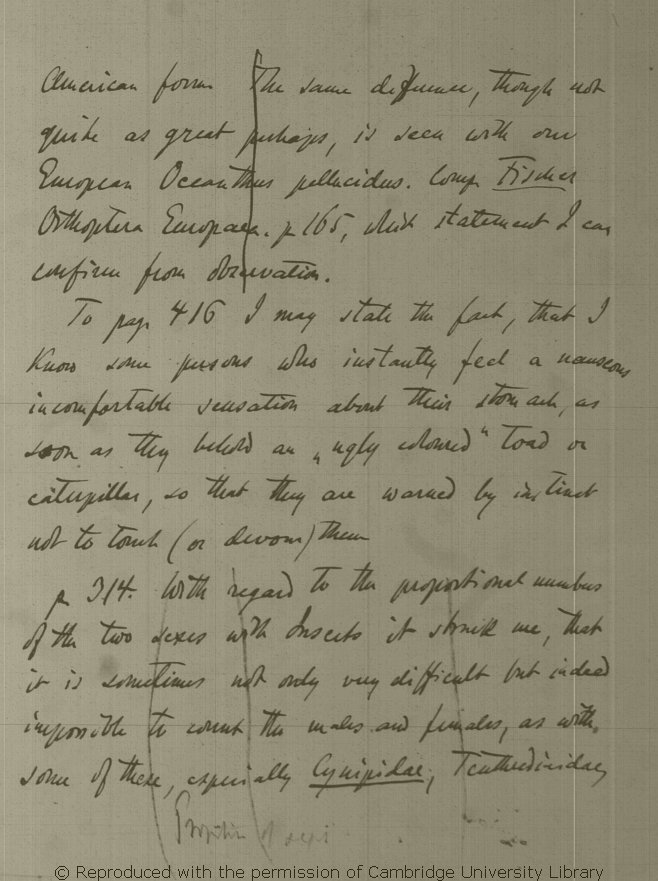 American form The same difference, though not
quite as great perhaps, is seen with our
European Oecanthus pellucidus. Comp. Fischer
Orthoptera Europaea. p 165, which statement I can
confirm from observation.
To page 416 I may state the fact, that I
know some persons who instantly feel a nauseous
incomfortable sensation about their stomach, as
soon as they behold an „ugly coloured" toad or
caterpillar, so that they are warned by instinct
not to touch (or devour) them
p 314. With regard to the proportional numbers
of the two sexes with Insects it struck me, that
it is sometimes not only very difficult but indeed
impossible to count the males and females, as with
some of these, especially Cynipidae, Tenthredinidae,
Proportion of sexes
© Reproduced with the permission of Cambridge University Library